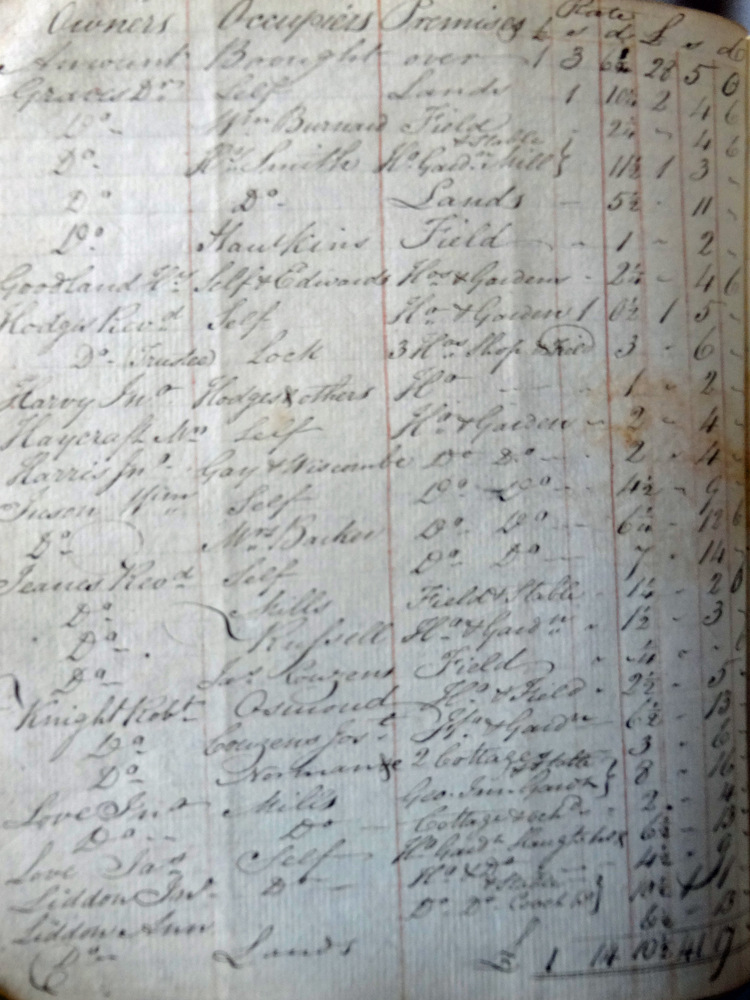 Owners Occupiers Premises Rate £ s d £ s d
Amount Brought over 1 3 6½ 28 5 0
Graves Dr. Self Lands 1 10½ 2 4 6
Do. Wm Burnard Field 2¼ - 4 6
Do. Hy Smith Ho. Gardn. & Stable Mill 11½ 1 3
Do. Do. Lands - 5½ - 11
Do. Hawkins Field - 1 - 2
Goodland Hy Self & Edwards Hos & Gardens - 2¼ - 4 6
Hodges Revd Self Ho & Garden 1 0½ 1 5
Do. Trustee Lock 3 Hos Shop & Field 3 - 6
Harvy Jno. Hodges & others Ho - 1 - 2
Haycraft Mr Self Ho & Garden - 2 - 4
Harris Jno. Gay & Wiscombe Do Do - 2 - 4
Wm Self Do Do 4½ - 9
Do. Mrs Backer Do. Do 6¼ - 12 6
Jeanes Revd Self Do Do 7 - 14
Do. Mills Field & Stable 1¼ - 2 6
Do. Russell Ho & Gardn 1½ - 3
Do. Jas Couzens Field
Knight Robt Osmond Ho & Field - 2½ - 5
Do Couzens Jos. Ho. & Gardn 6½ - 13
Do Norman 2 Cottages 3 - 6
Love Jno Mills Geo. Inn Gardn & Stable 8 - 16
Do. Do Cottage & 2 - 4
Love Jas Self Ho Gardn 6½ - 13
Liddon Jno. Do Ho & Do 4½ - 9
Liddon Ann Do. Do. Coach Ho & Stable 10½ 1 1
Do. Lands 6½ - 13
1 14 10½ 41 9